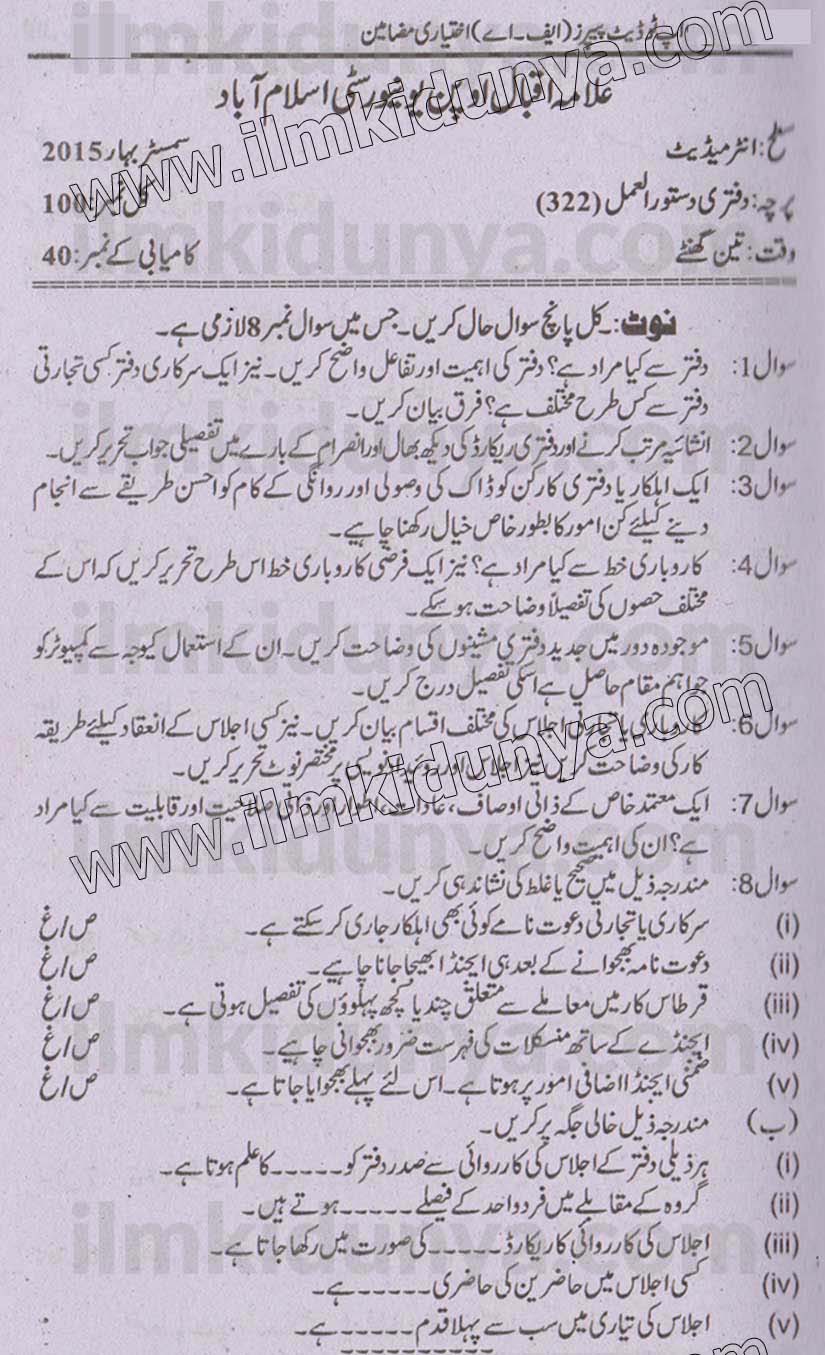 اپ ٹو ڈیٹ پیپرز (ایف۔اے) اختیاری مضامین
علامہ اقبال اوپن یونیورسٹی اسلام آباد
سطح: انٹرمیڈیٹ سمسٹر بہار 2015
پرچہ: دفتری دستور العمل (322) کل نمبر: 100
وقت: تین گھنٹے کامیابی کے نمبر: 40
نوٹ:۔ کل پانچ سوال حال کریں۔ جس میں سوال نمبر 8 لازمی ہے۔
سوال 1: دفتر سے کیا مراد ہے؟ دفتر کی اہمیت اور تفاعل واضح کریں۔ نیز ایک سرکاری دفتر کسی تجارتی
دفتر سے کس طرح مختلف ہے؟ فرق بیان کریں۔
سوال 2: انشائیہ مرتب کرنے اور دفتری ریکارڈ کی دیکھ بھال اور انصرام کے بارے میں تفصیلی جواب تحریر کریں۔
سوال 3: ایک اہلکار یا دفتری کارکن کو ڈاک کی وصولی اور روانگی کے کام کو احسن طریقے سے انجام
دینے کیلئے کن امور کا بطور خاص خیال رکھنا چاہیے۔
سوال 4: کاروباری خط سے کیا مراد ہے؟ نیز ایک فرضی کاروباری خط اس طرح تحریر کریں کہ اس کے
مختلف حصوں کی تفصیلاً وضاحت ہو سکے۔
سوال 5: موجودہ دور میں جدید دفتری مشینوں کی وضاحت کریں۔ ان کے استعمال کیوجہ سے کمپیوٹر کو
جو اہم مقام حاصل ہے اسکی تفصیل درج کریں۔
سوال 6: کاروباری یا تجارتی اجلاس کی مختلف اقسام بیان کریں۔ نیز کسی اجلاس کے انعقاد کیلئے طریقہ
کار کی وضاحت کریں نیز اجلاس اور روئیداد نویسی پر مختصر نوٹ تحریر کریں۔
سوال 7: ایک معتمد خاص کے ذاتی اوصاف، عادات، اطوار اور ذاتی صلاحیت اور قابلیت سے کیا مراد
ہے؟ ان کی اہمیت واضح کریں۔
سوال 8: مندرجہ ذیل میں صحیح یا غلط کی نشاندہی کریں۔
(i) سرکاری یا تجارتی دعوت نامے کوئی بھی اہلکار جاری کر سکتے ہے۔ ص/غ
(ii) دعوت نامہ بھجوانے کے بعد ہی ایجنڈا بھیجا جانا چاہیے۔ ص/غ
(iii) قرطاس کار میں معاملے سے متعلق چند یا کچھ پہلوؤں کی تفصیل ہوتی ہے۔ ص/غ
(iv) ایجنڈے کے ساتھ منسکلات کی فہرست ضرور بھجوانی چاہیے۔ ص/غ
(v) ضمنی ایجنڈا اضافی امور پر ہوتا ہے۔ اس لئے پہلے بھجوایا جاتا ہے۔ ص/غ
(ب) مندرجہ ذیل خالی جگہ پر کریں۔
(i) ہر ذیلی دفتر کے اجلاس کی کارروائی سے صدر دفتر کو ۔۔۔۔۔ کا علم ہوتا ہے۔
(ii) گروہ کے مقابلے میں فرد واحد کے فیصلے ۔۔۔۔۔ ہوتے ہیں۔
(iii) اجلاس کی کارروائی کا ریکارڈ ۔۔۔۔۔ کی صورت میں رکھا جاتا ہے۔
(iv) کسی اجلاس میں حاضرین کی حاضری ۔۔۔۔۔ ہے۔
(v) اجلاس کی تیاری میں سب سے پہلا قدم ۔۔۔۔۔ ہے۔
www.ilmkidunya.com
www.ilmkidunya.com